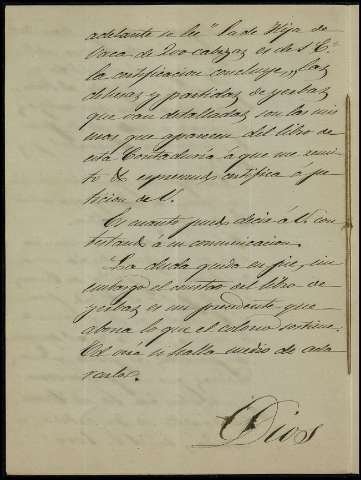 adelante se lee "la de Hija de
Vaca de 200 cabezas es de S. E.ª
la certificacion concluye, "las
dehesas y partidas de yerbas
que van detalladas son las mis
mas que aparecen del libro de
esta Contaduria á que me remi
to & espresado certifica á pe
ticion de V.
Es cuanto puedo decir á V. con
testando á su comunicacion.
La duda queda en pie, sin
embargo el asiento del libro de
yerbas es un precedente que
abona lo que el colono sostiene.
Vd verá si halla medio de acla
rarlo.
Dios